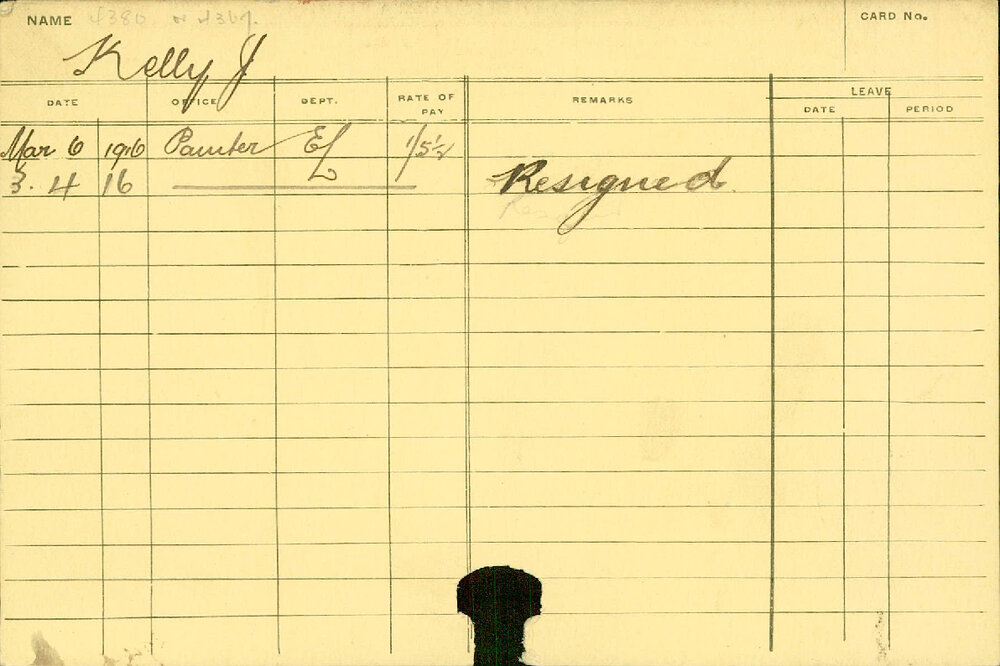 NAME 4380 or 4367.
CARD No.
Kelly J
DATE OFFICE DEPT. RATE OF PAY REMARKS LEAVE DATE PERIOD
Mar 6 1916 Painter EL 1/5½
3. 4 16 Resigned